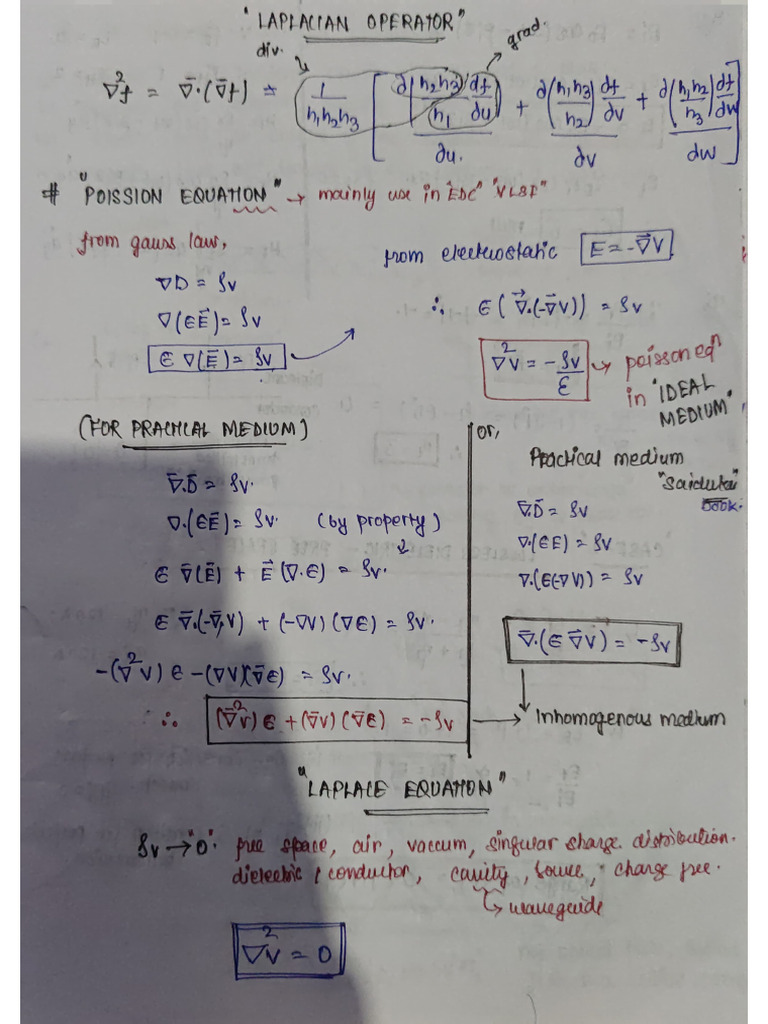 "LAPLACIAN OPERATOR"
div. grad.
∇²f = ∇̄·(∇̄f) = 1/(h₁h₂h₃) [ ∂(h₂h₃/h₁ df/du)/∂u. + ∂(h₁h₃/h₂) df/dv /∂v + ∂(h₁h₂/h₃) df/dw /∂w ]
# "POISSION EQUATION" → mainly use in "EDC" "VLSI"
from gauss law,
∇D = ρv
∇(ϵE⃗) = ρv
ϵ ∇(E⃗) = ρv
from electrostatic E = -∇⃗V
∴ ϵ(∇⃗.(-∇⃗V)) = ρv
∇²V = -ρv/ε → poissoned"
in "IDEAL
MEDIUM"
(FOR PRACTICAL MEDIUM)
∇̄.D̄ = ρv.
∇.(ϵE⃗) = ρv. (by property)
ϵ ∇̄(E⃗) + E⃗(∇.ϵ) = ρv.
ϵ ∇̄.(-∇̄V) + (-∇V)(∇ϵ) = ρv.
-(∇²V)ϵ - (∇V)(∇̄ϵ) = ρv.
∴ (∇̄²V)ϵ + (∇̄V)(∇̄ϵ) = -ρv
or,
Practical medium
book.
∇̄.D̄ = ρv
∇.(ϵE) = ρv
∇.(ϵ(-∇V)) = ρv
∇̄.(ϵ∇̄V) = -ρv
→ Inhomogenous medium
"LAPLACE EQUATION"
ρv → "0". free space, air, vaccum, singular charge distribution.
dielectric / conductor, cavity, source, charge free.
↳ waveguide
∇²V = 0